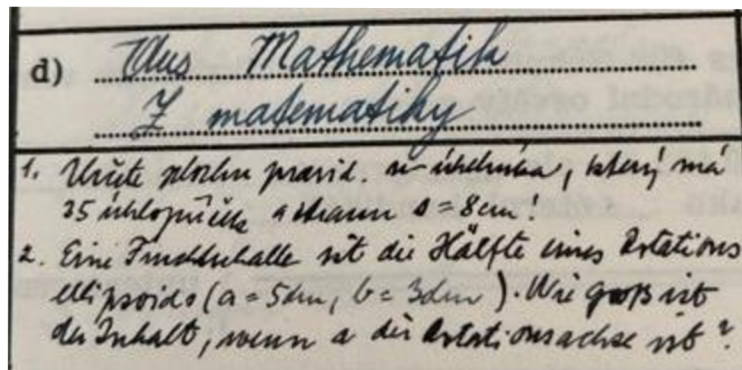 d) Aus Mathematik
Z matematiky
1. Určete plochu pravid. n-úhelníka, který má
35 úhlopříček a stranu s = 8 cm!
2. Eine Fruchtschale ist die Hälfte eines Rotations
ellipsoids (a = 5 dm, b = 3 dm). Wie groß ist
der Inhalt, wenn a die Rotationsachse ist?